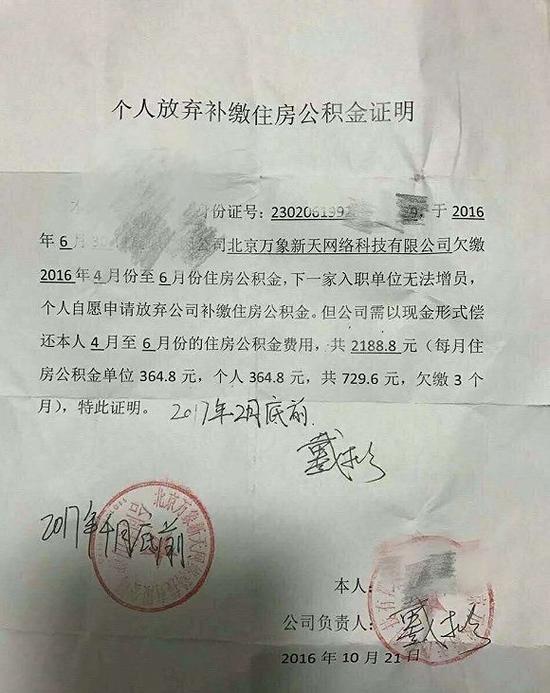 个人放弃补缴住房公积金证明
本 身份证号：2302061992 9，于 2016
年 6 月 30 公司北京万象新天网络科技有限公司欠缴
2016 年 4 月份至 6 月份住房公积金，下一家入职单位无法增员，
个人自愿申请放弃公司补缴住房公积金。但公司需以现金形式偿
还本人 4 月至 6 月份的住房公积金费用，共 2188.8 元（每月住
房公积金单位 364.8 元，个人 364.8 元，共 729.6 元，欠缴 3 个
月），特此证明。 2017年2月底前
2017年 月底前
北京万象新天网络科技有限公司
本人：
公司负责人：戴
2016 年 10 月 21 日